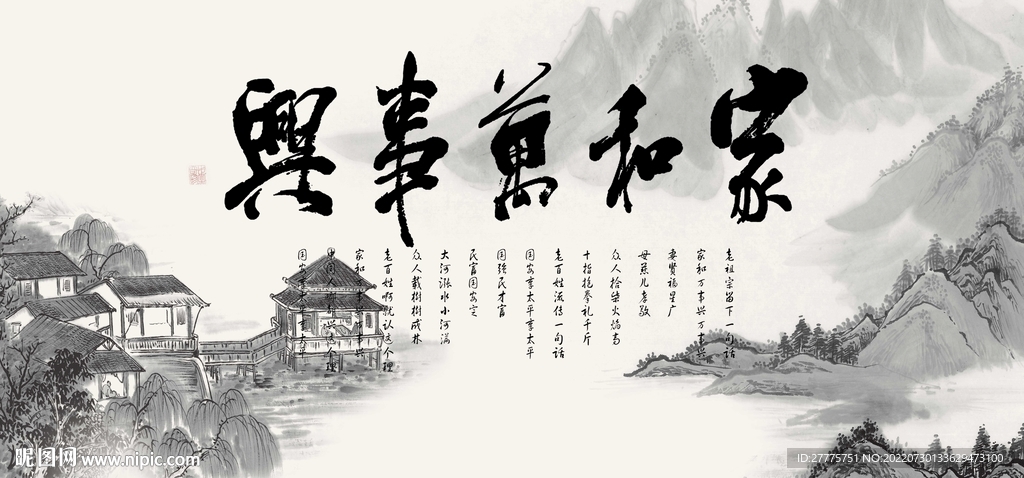 家和萬事興
老祖宗留下一句话
家和万事兴万事兴
妻贤福星广
母慈儿孝敬
众人拾柴火焰高
十指抱拳礼千斤
老百姓流传一句话
国安享太平享太平
国强民才富
民富国国安定
大河涨水小河满
众人栽樹樹成林
老百姓啊就认这个理
家和
昵图网 www.nipic.com
ID:27775751 NO:20220730133629473100